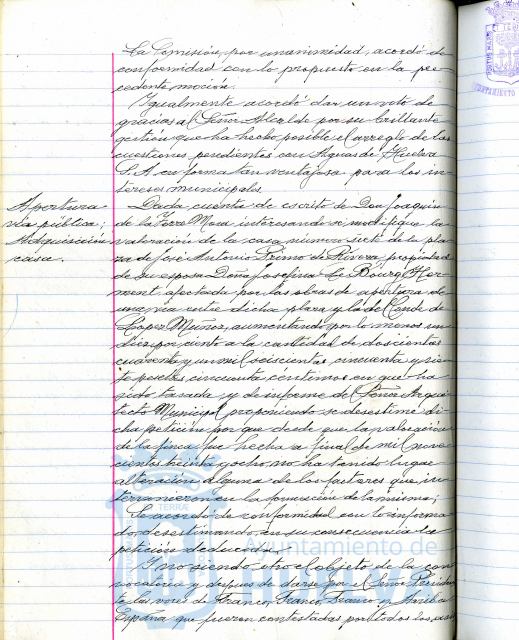 La Comisión, por unanimidad, acordó de
conformidad con lo propuesto en la pre-
cedente moción.
Igualmente acordó dar un voto de
gracias al Señor Alcalde por su brillante
gestión que ha hecho posible el arreglo de las
cuestiones pendientes con Aguas de Huelva
S.A. en forma tan ventajosa para los in-
tereses municipales.
Apertura
vía pública;
Adquisición
casa.
Dada cuenta de escrito de Don Joaquín
de la Torre Mora interesando se modifique la
valoración de la casa número siete de la pla-
za de José Antonio Primo de Rivera propiedad
de su esposa Doña Josefina Le Bourg Her-
ment, afectada por las obras de apertura de
una vía entre dicha plaza y la del Conde de
López Muñoz, aumentando por lo menos un
diez por ciento a la cantidad de doscientas
cuarenta y un mil seiscientas cincuenta y sie-
te pesetas cincuenta céntimos en que ha
sido tasada, y de informe del Señor Arqui-
tecto Municipal proponiendo se desestime di-
cha petición por que desde que la valoración
de la finca fue hecha a final de mil nove-
cientos treinta y ocho, no ha tenido lugar
alteración alguna de los factores que in-
tervinieron en la formación de la misma;
Se acordó de conformidad con lo informa-
do, desestimando, en su consecuencia la
petición deducida.
Y no siendo otro el objeto de la con-
vocatoria y después de darse por el Señor Presiden-
te las voces de Franco, Franco, Franco y Arriba
España que fueron contestadas por todos los
TERRA
Ayuntamiento de
HUELVA